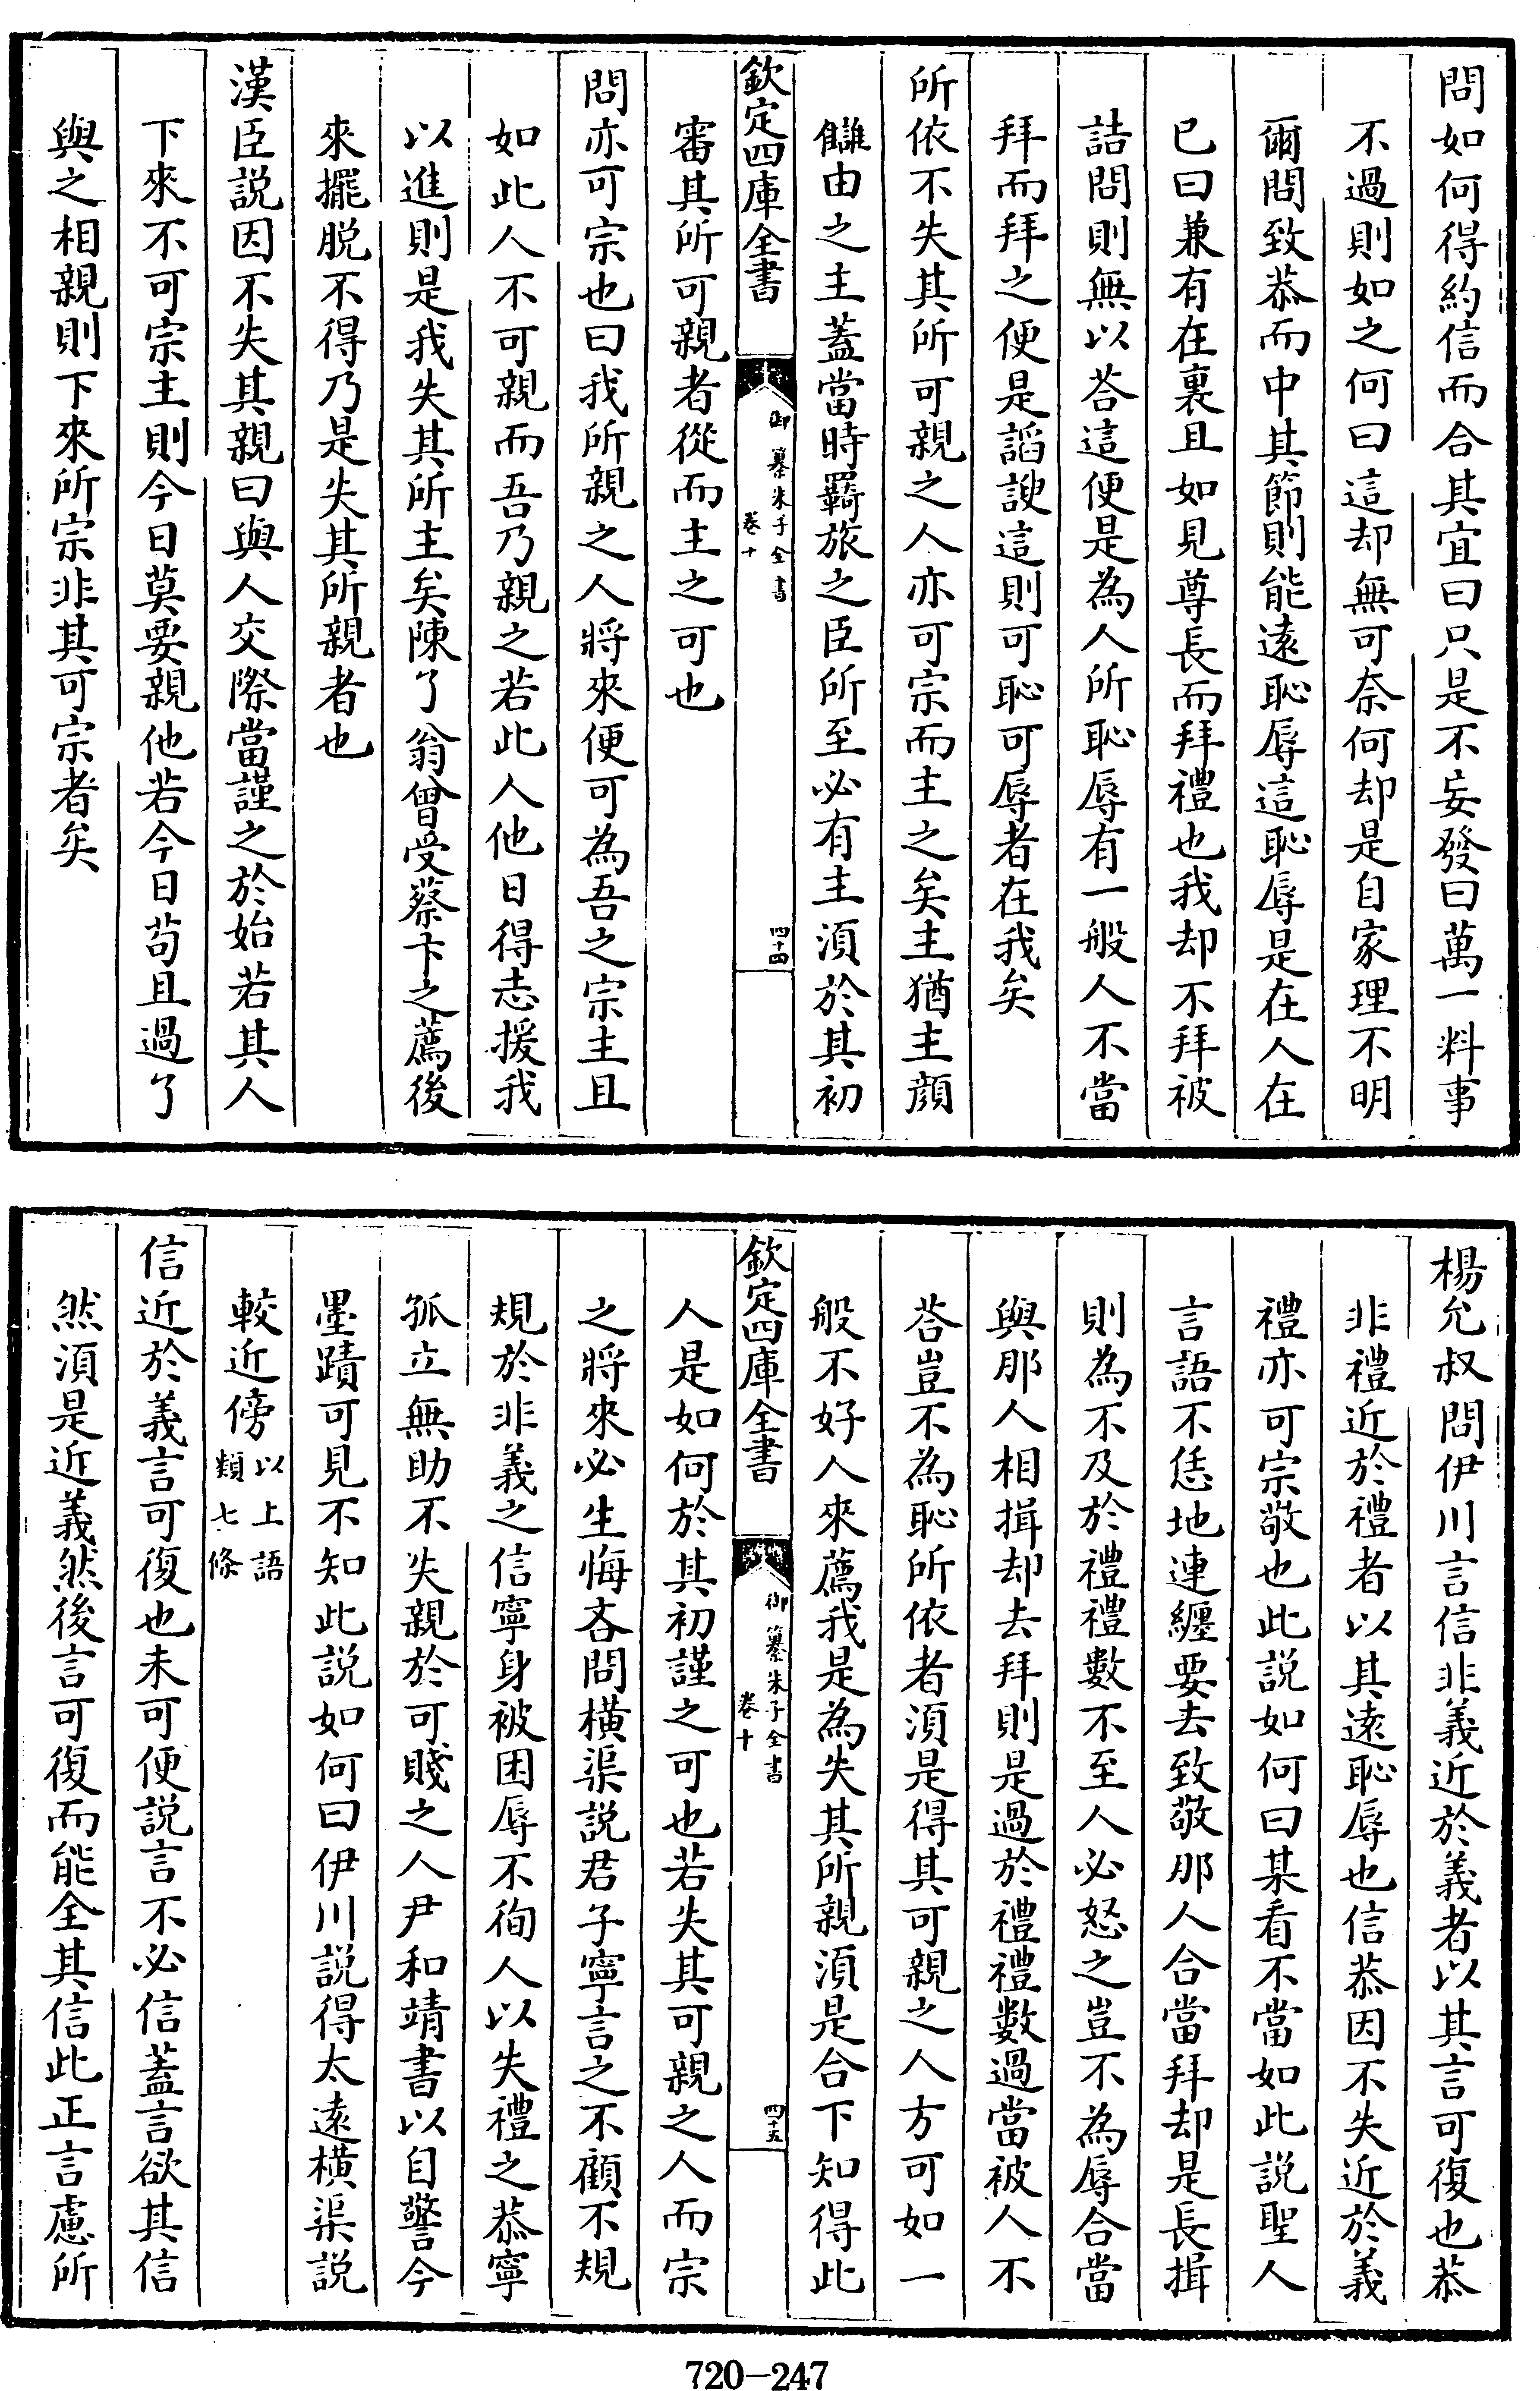 問如何得約信而合其宜曰只是不妄發曰萬一料事
不過則如之何曰這却無可奈何却是自家理不明
爾問致恭而中其節則能遠恥辱這恥辱是在人在
已曰兼有在裏且如見尊長而拜禮也我却不拜被
詰問則無以荅這便是為人所恥辱有一般人不當
拜而拜之便是諂諛這則可恥可辱者在我矣
所依不失其所可親之人亦可宗而主之矣主猶主顔
讎由之主蓋當時羇旅之臣所至必有主須於其初
欽定四庫全書
御纂朱子全書
卷十
四十四
審其所可親者從而主之可也
問亦可宗也曰我所親之人將來便可為吾之宗主且
如此人不可親而吾乃親之若此人他日得志援我
以進則是我失其所主矣陳了翁曾受蔡卞之薦後
來擺脱不得乃是失其所親者也
漢臣説因不失其親曰與人交際當謹之於始若其人
下來不可宗主則今日莫要親他若今日苟且過了
與之相親則下來所宗非其可宗者矣
楊允叔問伊川言信非義近於義者以其言可復也恭
非禮近於禮者以其遠恥辱也信恭因不失近於義
禮亦可宗敬也此説如何曰某看不當如此說聖人
言語不恁地連纏要去致敬那人合當拜却是長揖
則為不及於禮禮數不至人必怒之豈不為辱合當
與那人相揖却去拜則是過於禮禮數過當被人不
荅豈不為恥所依者須是得其可親之人方可如一
般不好人來薦我是為失其所親須是合下知得此
欽定四庫全書
御纂朱子全書
卷十
四十五
人是如何於其初謹之可也若失其可親之人而宗
之將來必生悔吝問橫渠説君子寧言之不顧不規
規於非義之信寧身被困辱不徇人以失禮之恭寧
孤立無助不失親於可賤之人尹和靖書以自警今
墨蹟可見不知此説如何曰伊川説得太遠橫渠説
較近傍以上語類七條
信近於義言可復也未可便説言不必信蓋言欲其信
然須是近義然後言可復而能全其信此正言慮所
720-247